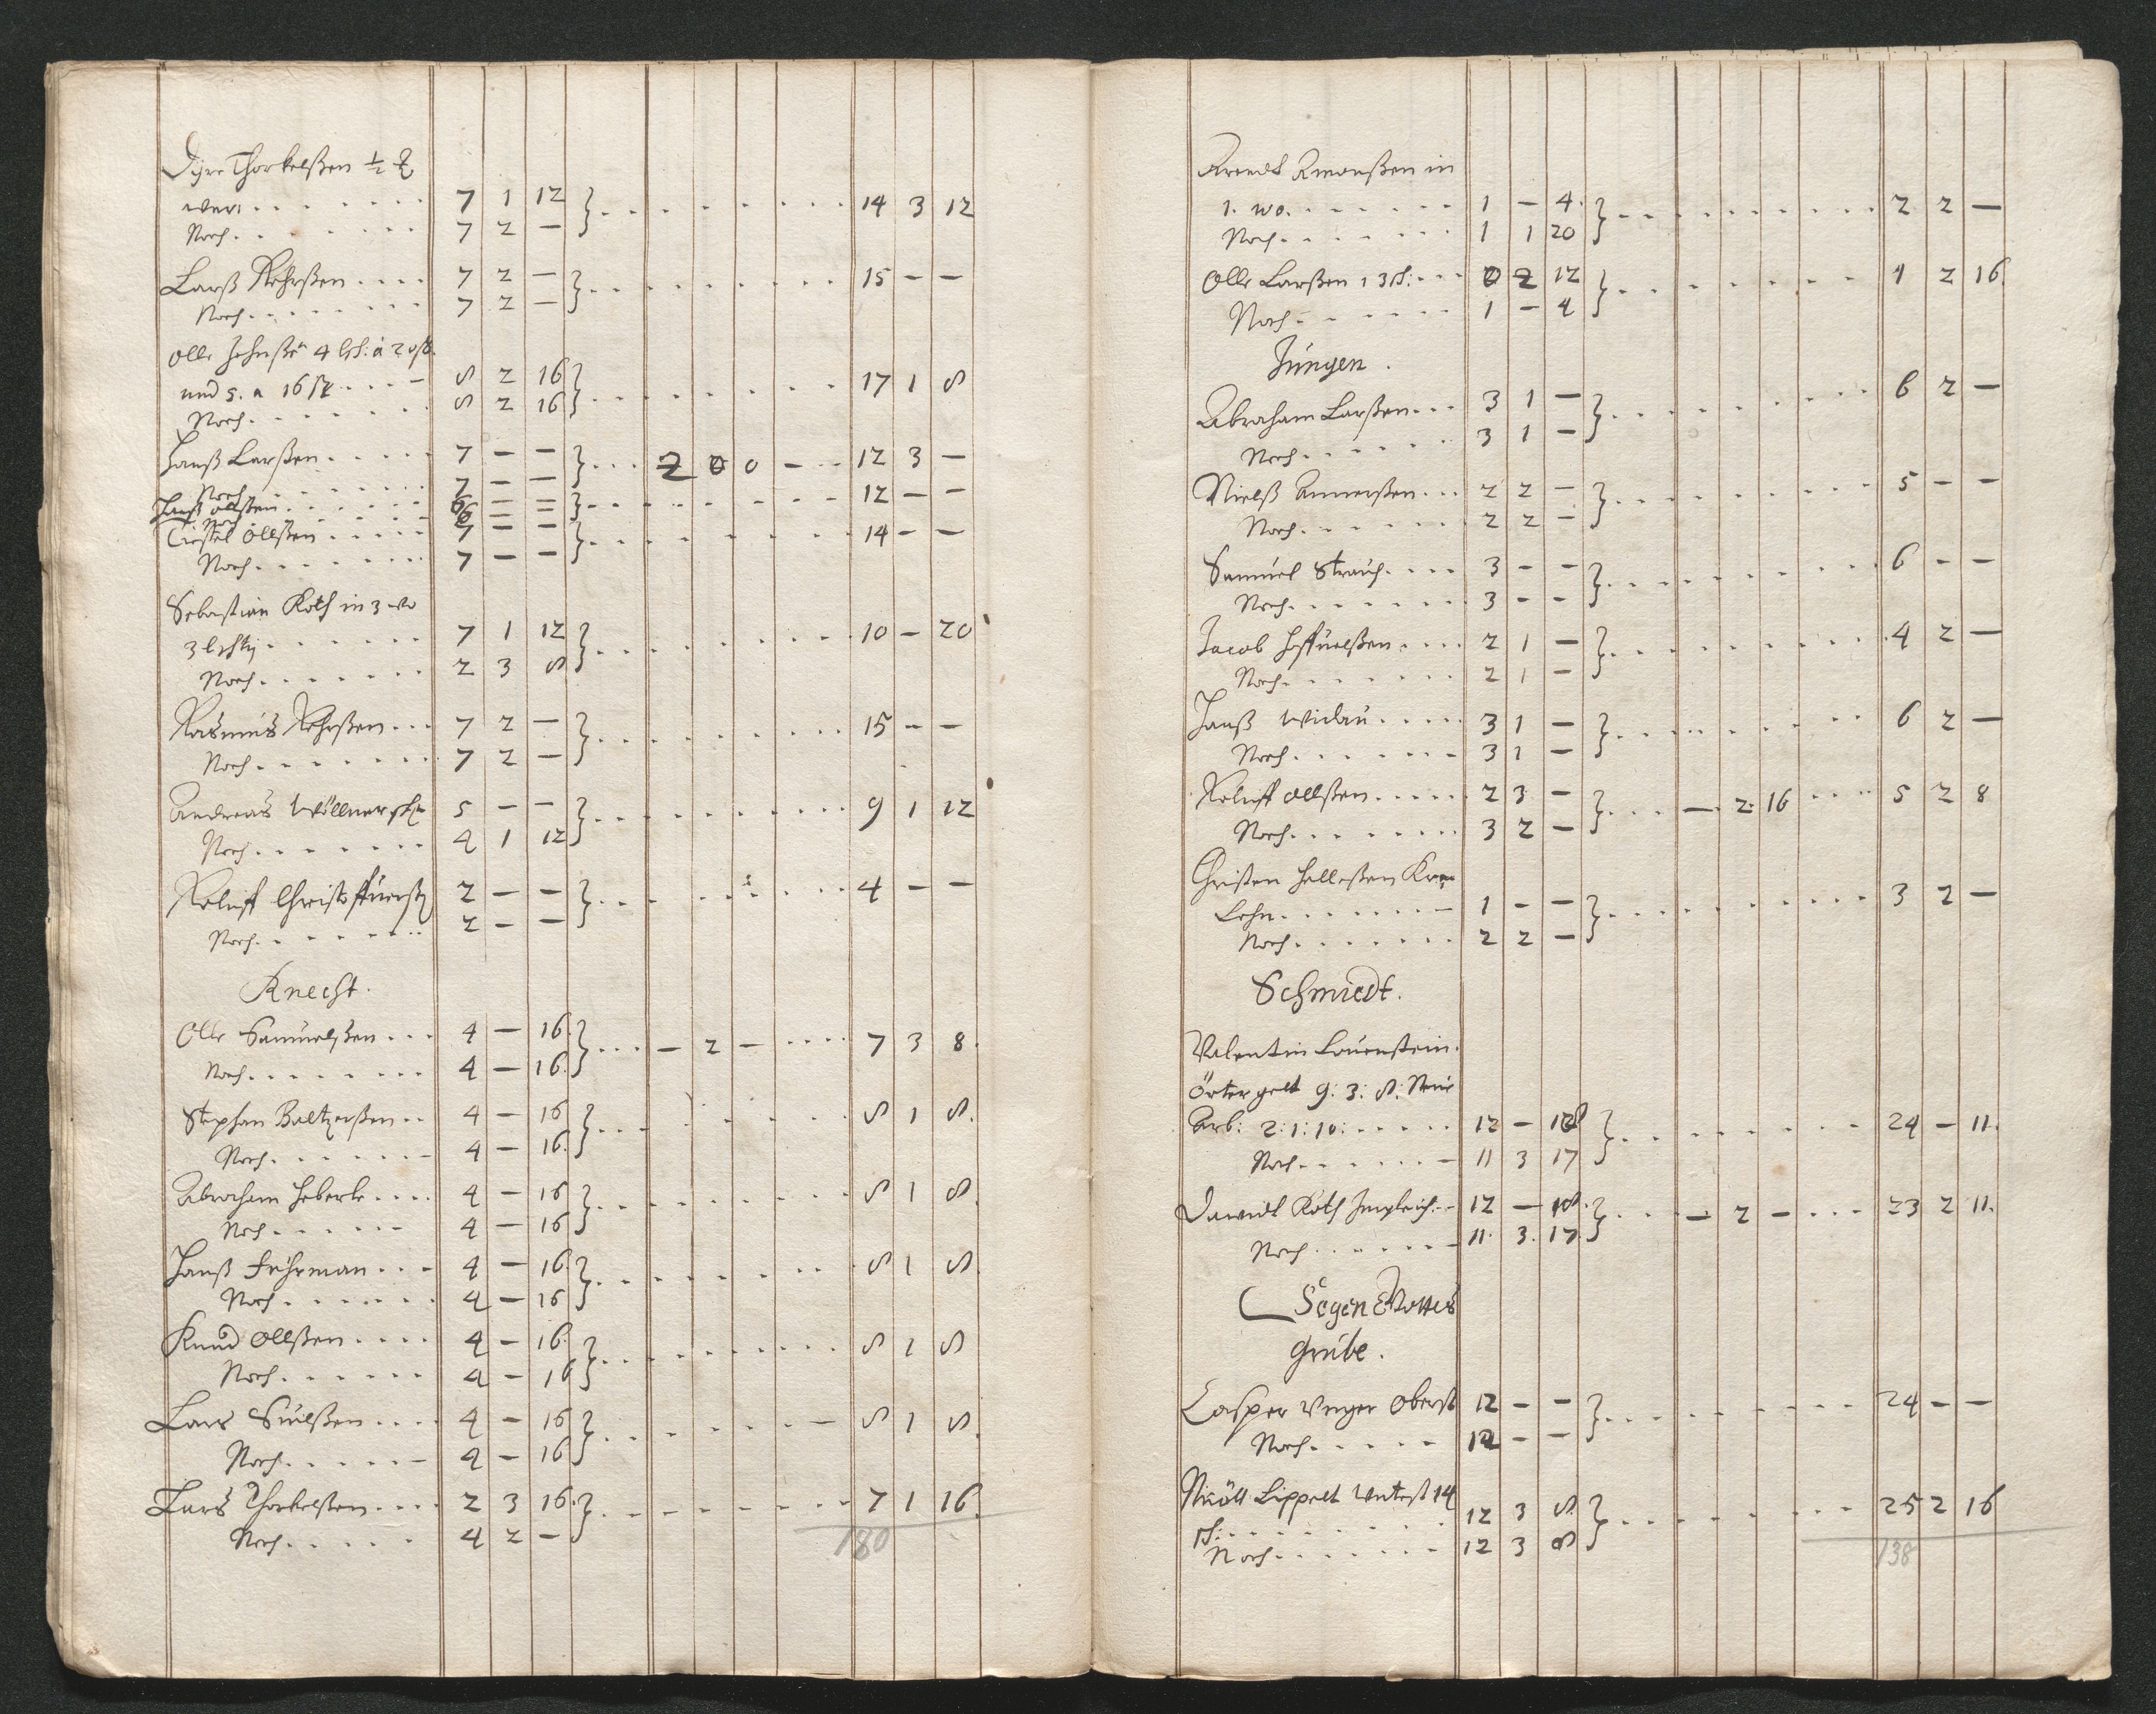 Dijre Thorkelßen ½
werc . . . 7 1 12 } . . . 14 3 12
Noch . . . 7 2 —
Larß Rohrßen . . . 7 2 — } . . . 15 — —
Noch . . . 7 2 —
Olle Johnßen 4 lcht: à 20 ß.
und 5. a 16 ß . . . 8 2 16 } . . . 17 1 8
Noch . . . 8 2 16
Hanß Larßen . . . 7 — — } . . . 2 0 0 — . . 12 3 —
Noch . . . 7 — —
Hanß Ollßen . . . 6 — — } . . . 12 — —
Noch . . . 6 — —
Ciostel Ollßen . . . 7 — — } . . . 14 — —
Noch . . . 7 — —
Sebastian Roth in 3 wo
3 lchtj . . . 7 1 12 } . . . 10 — 20
Noch . . . 2 3 8
Raßmus Rohrßen . . . 7 2 — } . . . 15 — —
Noch . . . 7 2 —
Andreas Wöllner . . . 5 — — } . . . 9 1 12
Noch . . . 4 1 12
Roluff Christoffuerß 2 — — } . . . 4 — —
Noch . . . 2 — —
Knecht.
Olle Samuelßen . . . 4 — 16. } . . . — 2 — . . . 7 3 8.
Noch . . . 4 — 16.
Stephan Baltzerßen . . 4 — 16 } . . . 8 1 8.
Noch . . . 4 — 16.
Abraham Heberle . . . 4 — 16 } . . . 8 1 8.
Noch . . . 4 — 16
Hanß Fuhrman . . . 4 — 16. } . . . 8 1 8.
Noch . . . 4 — 16
Knud Ollßen . . . 4 — 16. } . . . 8 1 8
Noch . . . 4 — 16
Lars Siulßen . . . 4 — 16 } . . . 8 1 8.
Noch . . . 4 — 16
Lars Thorkelßen . . . 2 3 16. } . . . 7 1 16.
Noch . . . 4 2 —
180
Arendt Amonßen in
1. wo. . . . 1 — 4. } . . . 2 2 —
Noch . . . 1 1 20
Olle Larßen 13 ß: . . . 0 2 12 } . . . 1 2 16.
Noch . . . 1 — 4
Jungen.
Abraham Larßen . . . 3 1 — } . . . 6 2 —
Noch . . . 3 1 —
Nielß Amonßen . . . 2 2 — } . . . 5 — —
Noch . . . 2 2 —
Samuel Strauch . . . 3 — — } . . . 6 — —
Noch . . . 3 — —
Jacob Hoffuelßen . . . 2 1 — } . . . 4 2 —
Noch . . . 2 1 —
Hanß Widau . . . 3 1 — } . . . 6 2 —
Noch . . . 3 1 —
Roluff Ollßen . . . 2 3 — } . . . — 2 16 . . . 5 2 8
Noch . . . 3 2 —
Christen Helleßen
Lohn . . . 1 — — } . . . 3 2 —
Noch . . . 2 2 —
Schmiedt.
Valentin Lauenstein.
Örter gelt 9: 3: 8: Neue
Arb: 2: 1: 10: . . . 12 — 18 } . . . 24 — 11.
Noch . . . 11 3 17
Dawidt Roth Jmgleich . . 12 — 18. } . . . — 2 — . . . 23 2 11.
Noch . . . 11. 3. 17.
Segen Gottes
Grube.
Casper Unger Oberst 12 — — } . . . 24 — —
Noch . . . 12 — —
Nicöll Lippelt Unterst 14
ß: . . . 12 3 8. } . . . 25 2 16
Noch . . . 12 3 8
138